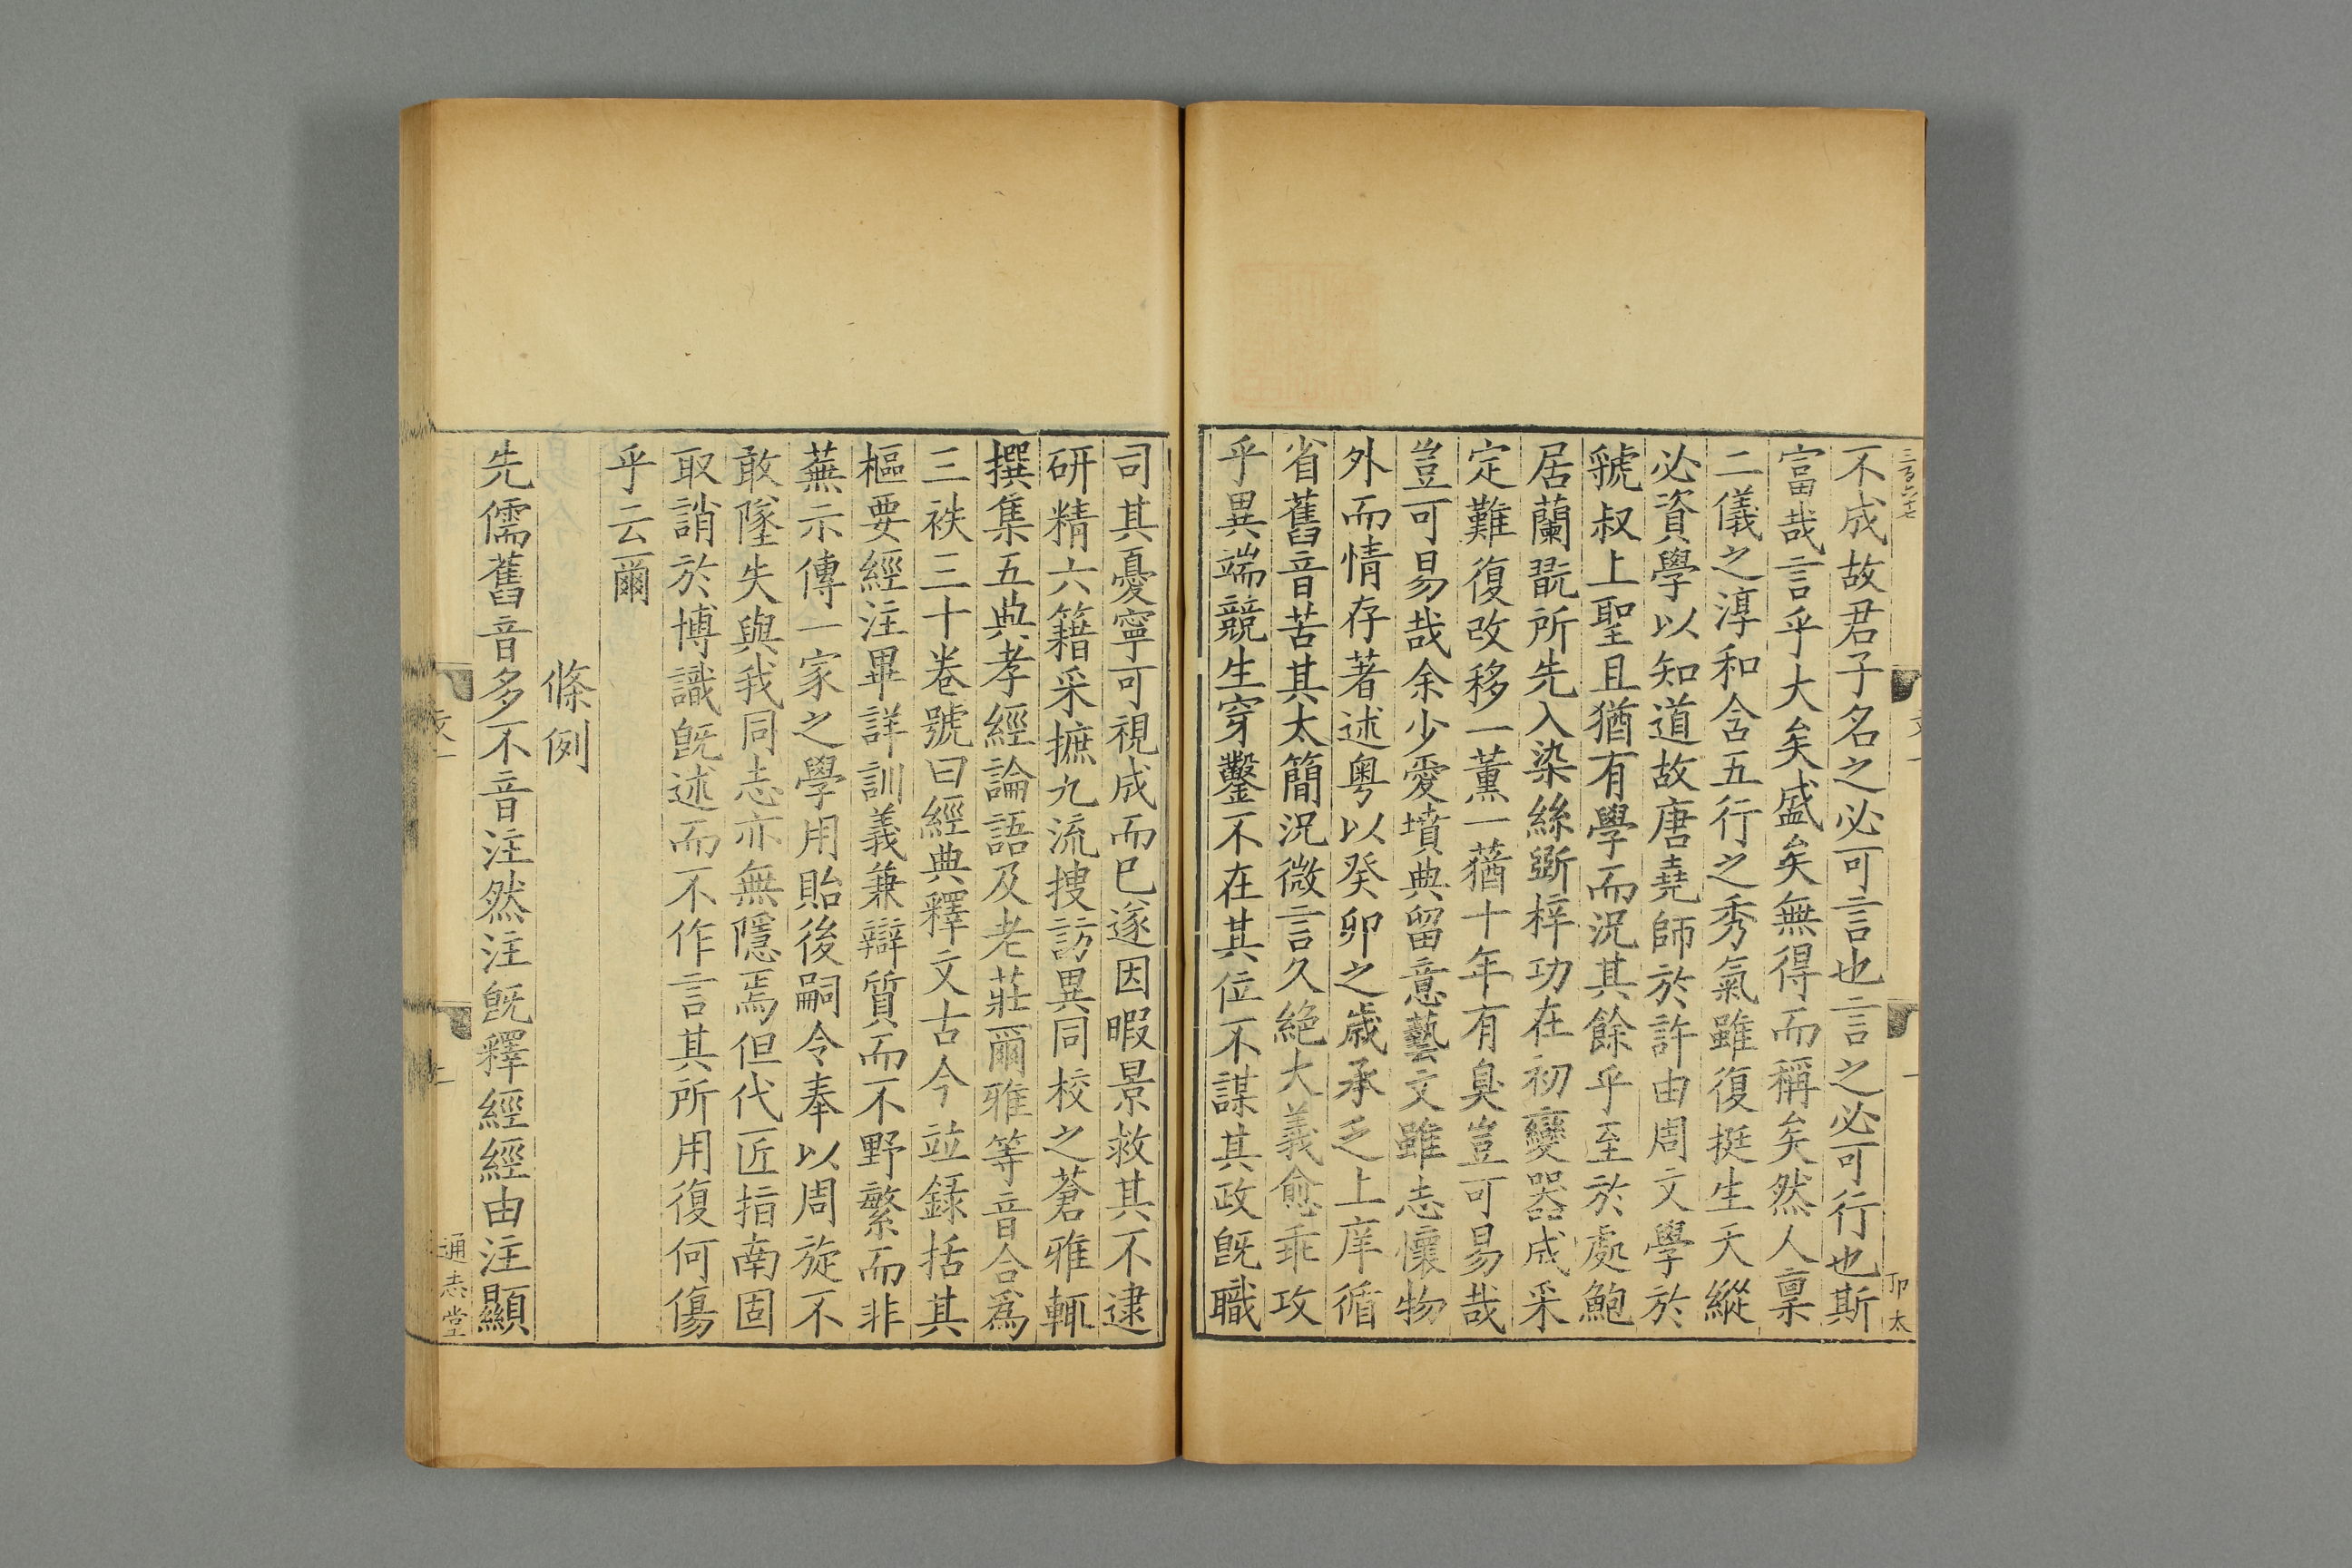 三百六十七
不成故君子名之必可言也言之必可行也斯
富哉言乎大矣盛矣無得而稱矣然人稟
二儀之淳和含五行之秀氣雖復挺生天縱
必資學以知道故唐堯師於許由周文學於
虢叔上聖且猶有學而況其餘乎至於處鮑
居蘭翫所先入染絲斲梓功在初變器成采
定難復改移一薰一蕕十年有臭豈可易哉
豈可易哉余少愛墳典留意藝文雖志懷物
外而情存著述粵以癸卯之歲承乏上庠循
省舊音苦其太簡況微言久絕大義愈乖攻
乎異端競生穿鑿不在其位不謀其政旣職
司其憂寧可視成而已遂因暇景救其不逮
研精六籍采摭九流搜訪異同校之蒼雅輒
撰集五典孝經論語及老莊爾雅等音合爲
三袟三十卷號曰經典釋文古今竝錄括其
樞要經注畢詳訓義兼辯質而不野繁而非
蕪示傳一家之學用貽後嗣令奉以周旋不
敢墜失與我同志亦無隱焉但代匠指南固
取誚於博識旣述而不作言其所用復何傷
乎云爾
條例
先儒舊音多不音注然注旣釋經經由注顯
通志堂